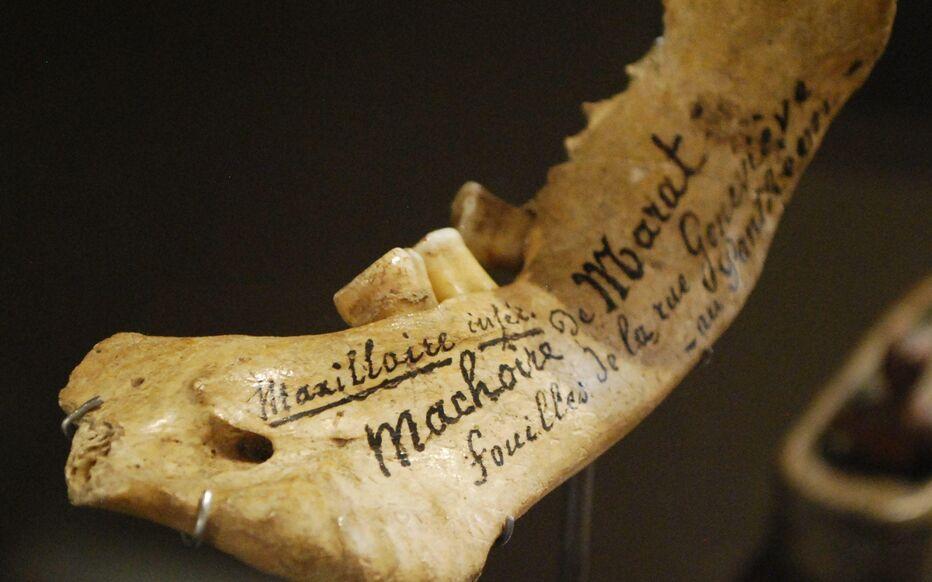 Maxilloire infér.
Machoire de Marat
fouilles de la rue Geneviève
- au Panthéon -